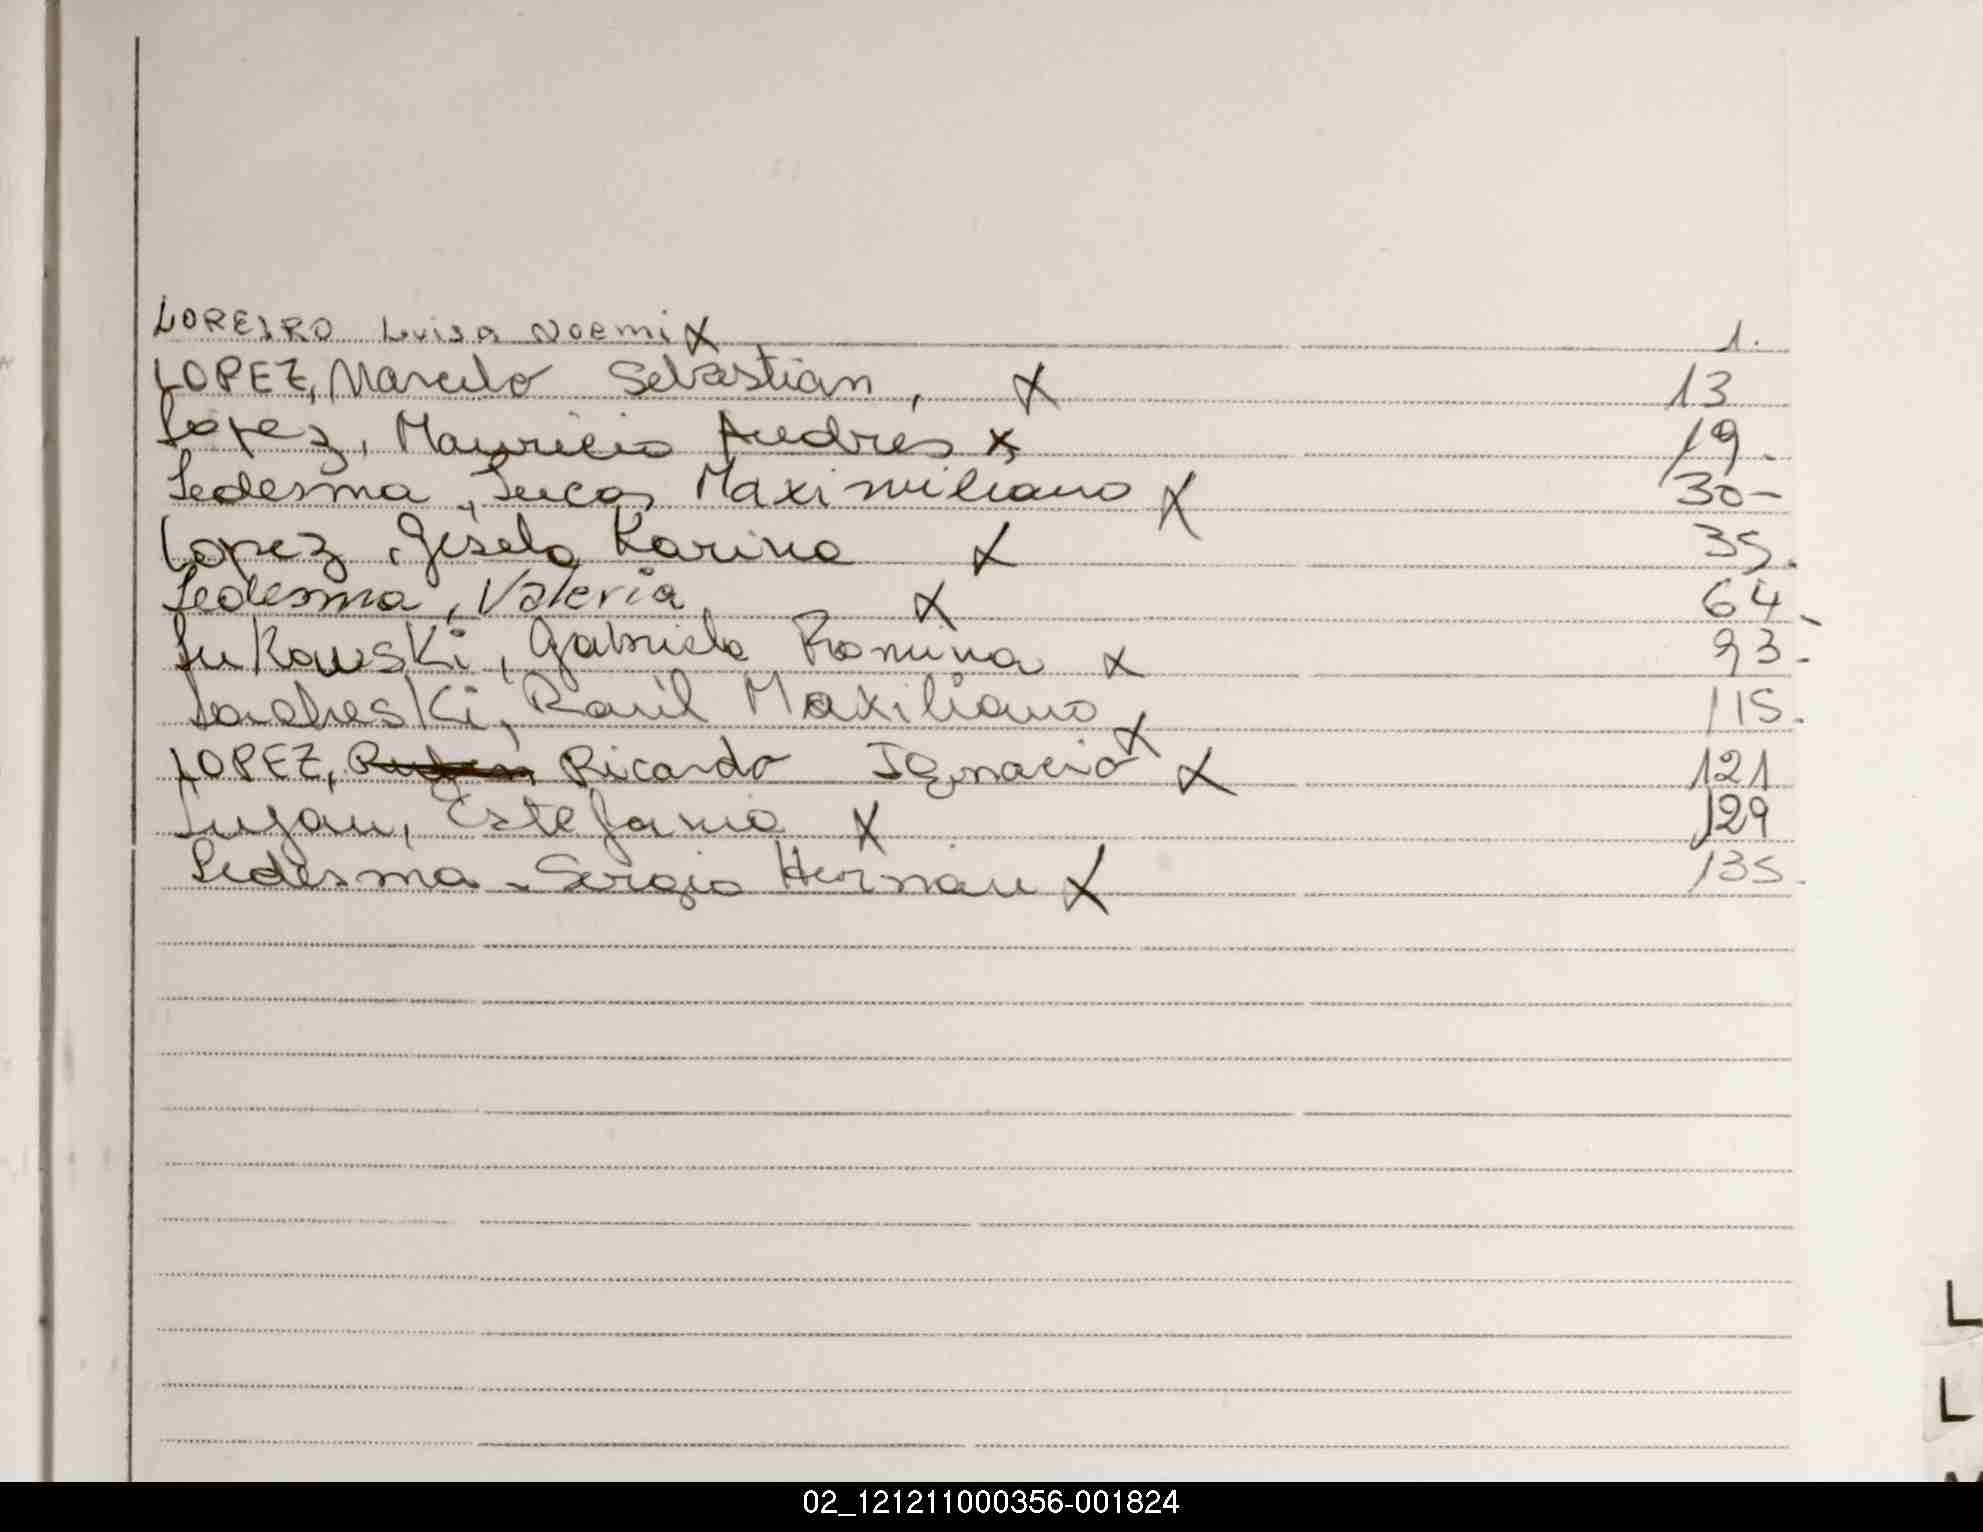 LOREIRO Luisa Noemi X 1.
LOPEZ, Marcelo Sebastian, X 13
Lopez, Mauricio Andrés X 19.
Ledesma, Lucas Maximiliano X 30-
Lopez, Gisela Karina X 35.
Ledesma, Valeria X 64
Lukowski, Gabriela Romina X 93-
Raúl Maxiliano X 115.
LOPEZ, Ricardo Ignacio X 121
Lujan, Estefania X 129
Ledesma - Sergio Hernan X 135.
L
L
02_121211000356-001824